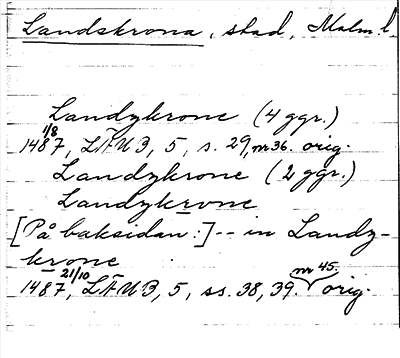 Landskrona, stad, Malm. l.
Landzkrone (4 ggr.)
1487 1/8, LÄUB, 5, s. 29, nr 36. orig.
Landzkrone (2 ggr.)
Landzkrone
[På baksidan:] -- in Landz-
krone
1487 21/10, LÄUB, 5, ss. 38, 39. nr 45. orig.